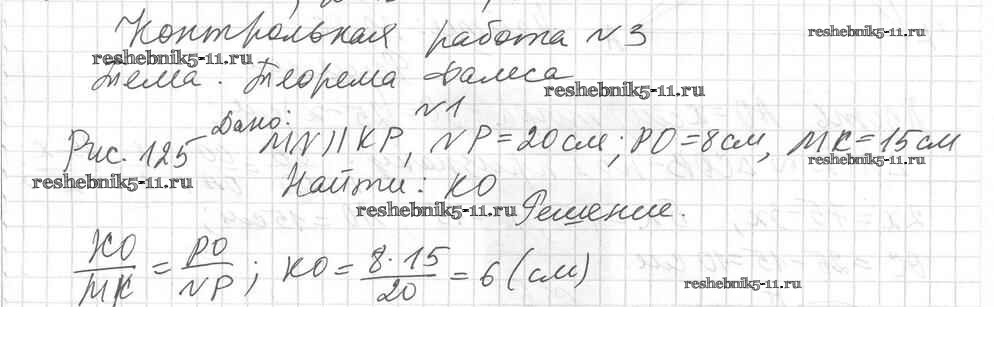 Контрольная работа №3
reshebnik5-11.ru
reshebnik5-11.ru
Тема. Теорема Фалеса
reshebnik5-11.ru
№1
Рис. 125 Дано: MN || KP, NP = 20 см; PO = 8 см, MK = 15 см
reshebnik5-11.ru
reshebnik5-11.ru
Найти: KO
reshebnik5-11.ru
Решение.
KO/MK = PO/NP; KO = 8·15/20 = 6 (см)
reshebnik5-11.ru